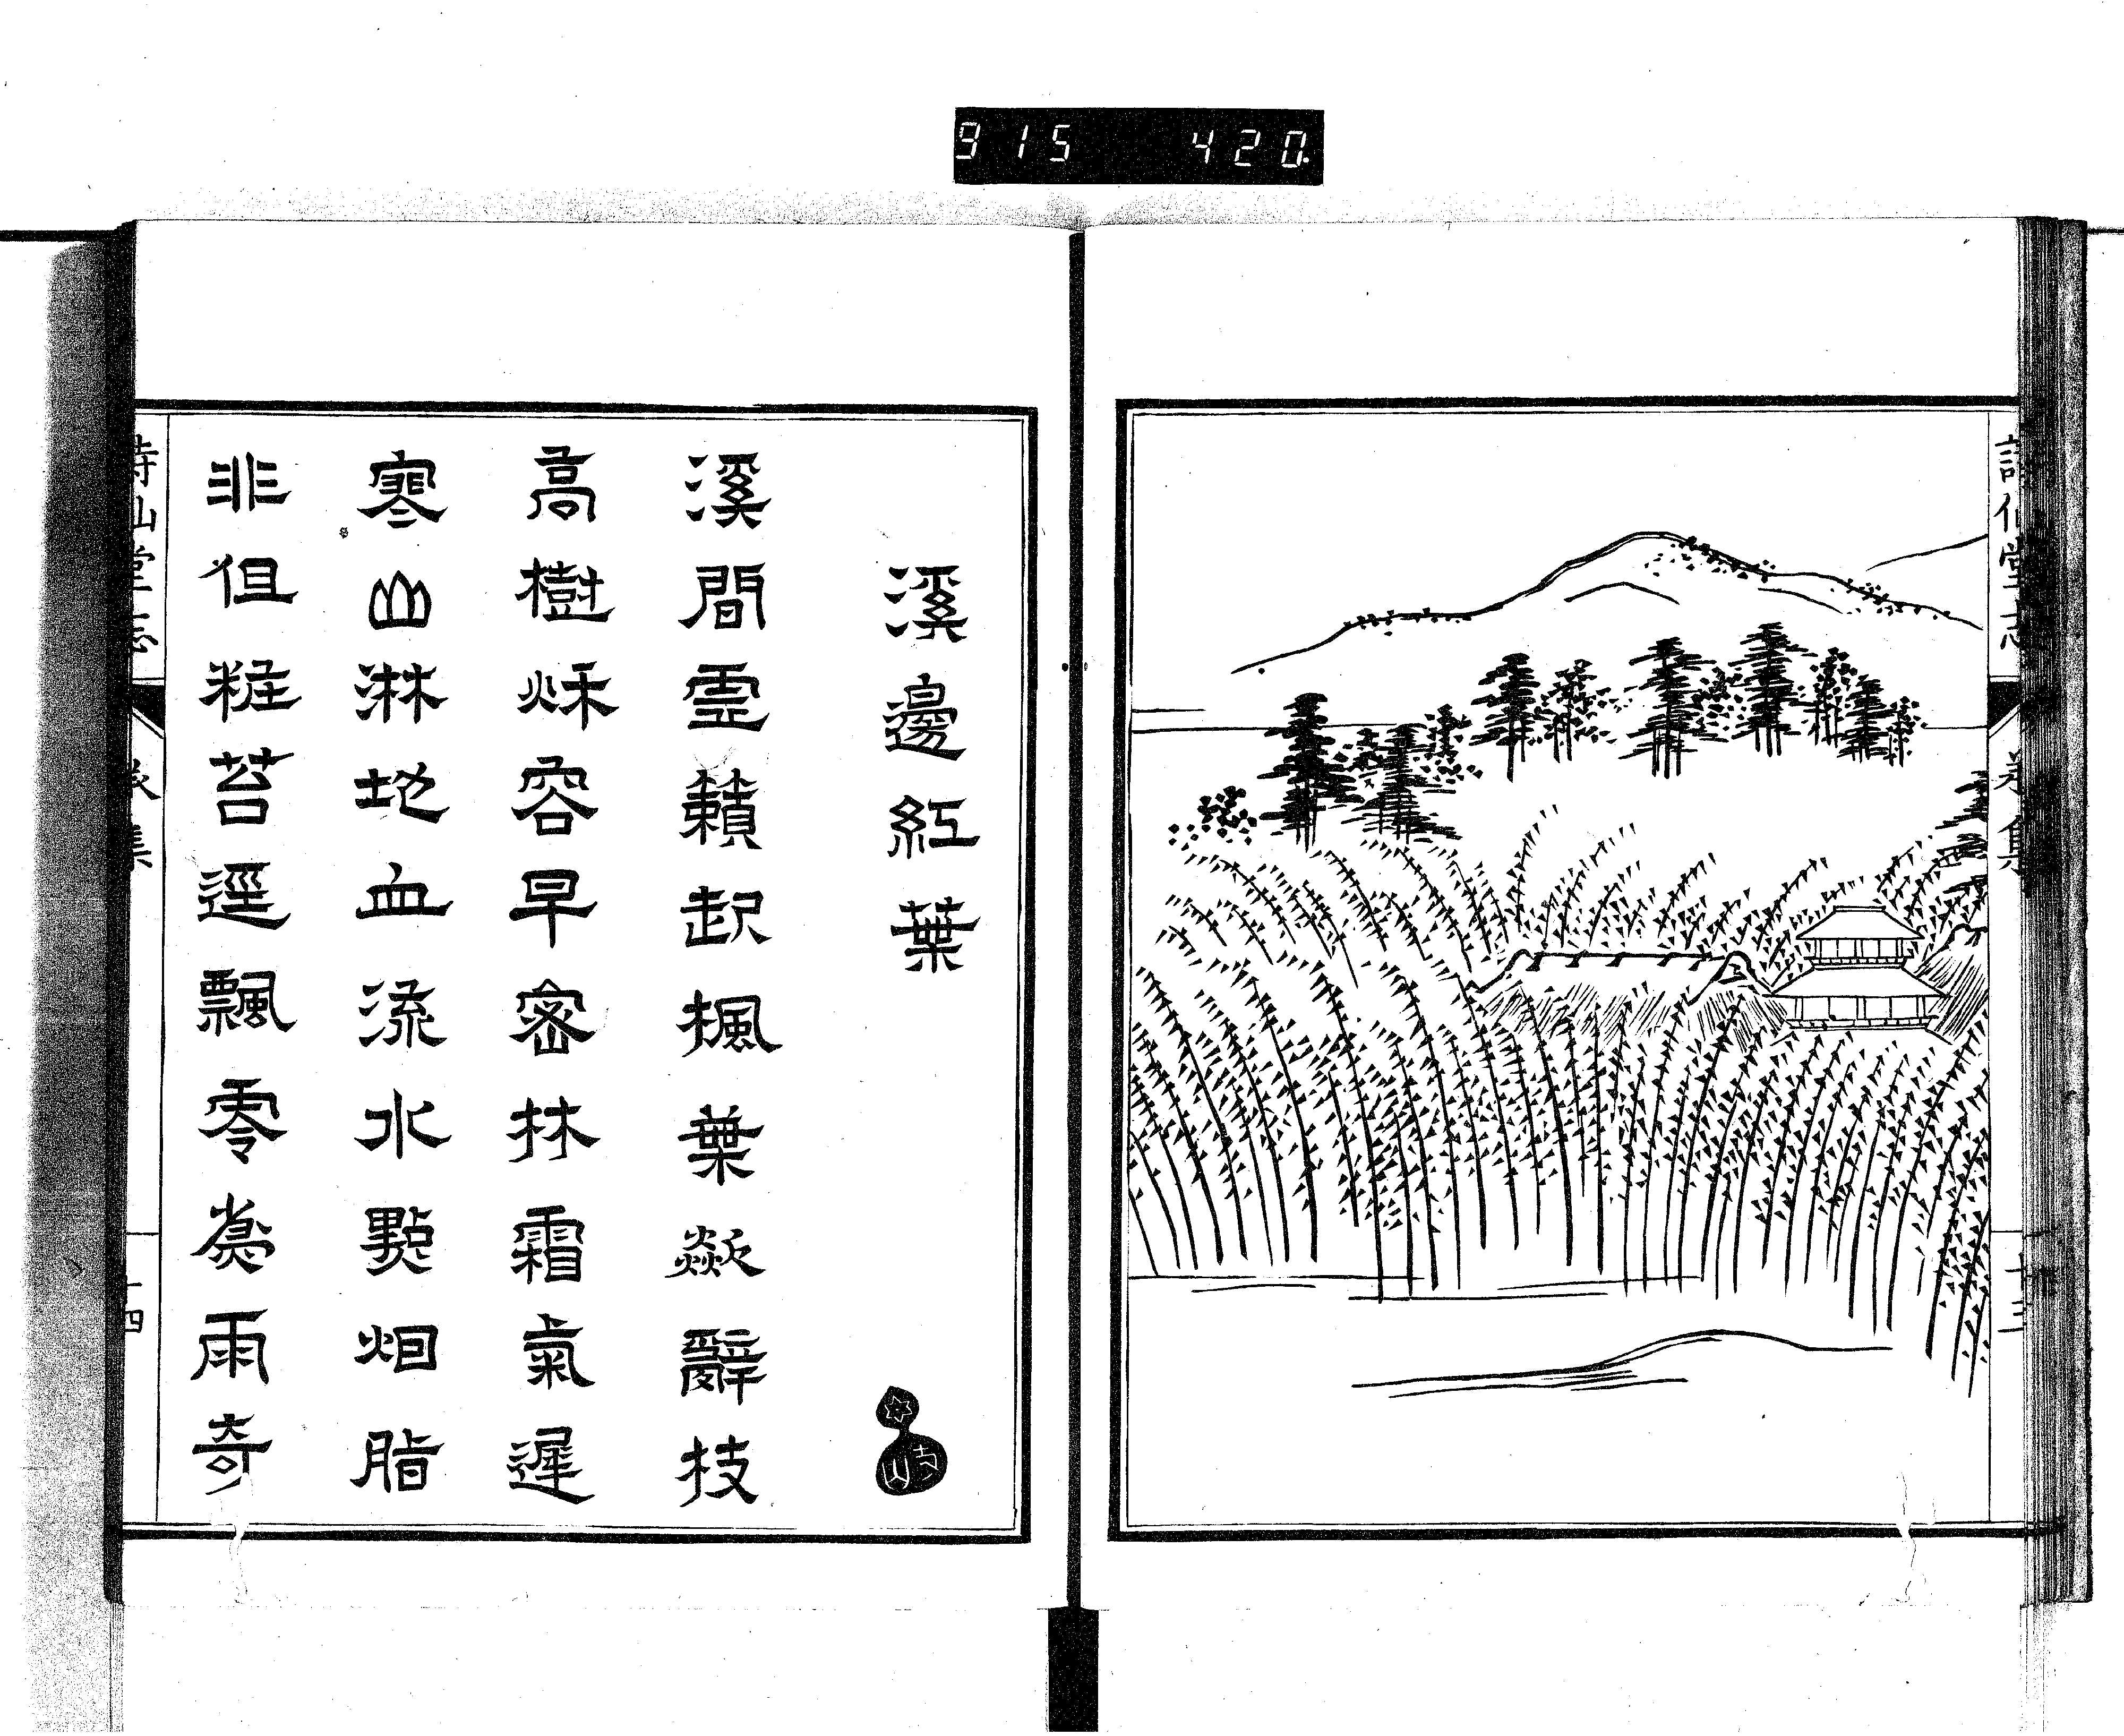 915 420.
詩仙堂志
永集
十三
溪邊紅葉
溪間靈籟起楓葉燚辭枝
高樹秌容早密林霜氣遲
寒山淋地血流水點烟脂
非但粧苔逕飄零為雨奇
詩仙堂志
永集
十四